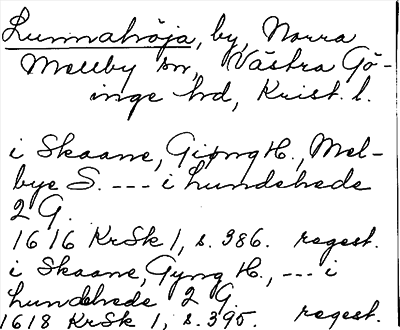 Lunnahöja, by, Norra
Mellby sn, Västra Gö-
inge hd, Krist. l.
i Skaane, Giøng H., Mel-
bye S. --- i Lundehede
2 G.
1616 KrSk 1, s. 386. regest.
i Skaane, Gyng H., --- i
Lundehede 2 G.
1618 KrSk 1, s. 395. regest.